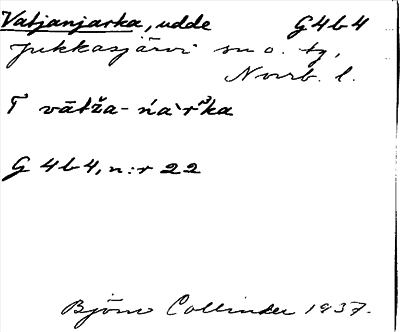 Vatjanjarka, udde G4b4
Jukkasjärvi sn o. tg,
Norrb. l.
T vātža-ńàrˈka
G 4b4, n:r 22
Björn Collinder 1937.